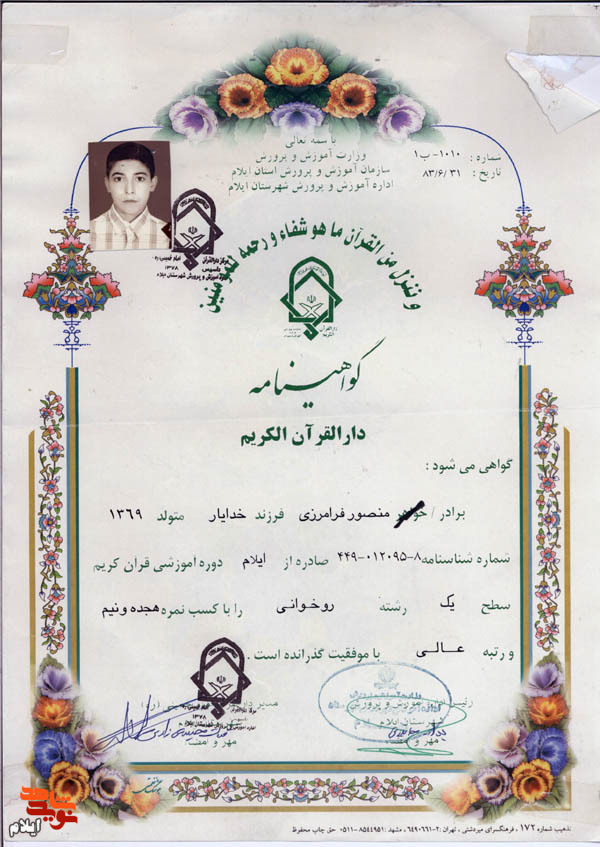 با سمه تعالی
وزارت آموزش و پرورش
سازمان آموزش و پرورش استان ایلام
اداره آموزش و پرورش شهرستان ایلام
شماره : ۱۰۱۰-ب۱
تاریخ : ۸۳/۶/۳۱
و ننزل من القرآن ما هو شفاء و رحمة للمؤمنین
دارالقرآن الکریم
گواهینامه
دارالقرآن الکریم
گواهی می شود :
برادر / خواهر منصور فرامرزی فرزند خدایار متولد ۱۳۶۹
شماره شناسنامه ۸-۰۱۲۰۹۵-۴۴۹ صادره از ایلام دوره آموزشی قرآن کریم
سطح یک رشته روخوانی را با کسب نمره هجده ونیم
و رتبه عالی با موفقیت گذرانده است .
رئیس آموزش و پرورش
شهرستان ایلام
مهر و امضاء
مدیر
مهر و امضاء
۱۳۷۸
تذهیب شماره ۱۷۲ ، فرهنگسرای میردشتی ، تهران : ۲-۶۴۹۰۶۶۱ ، مشهد : ۸۵۴۴۹۵۱-۰۵۱۱ حق چاپ محفوظ
نوید شاهد
ایلام